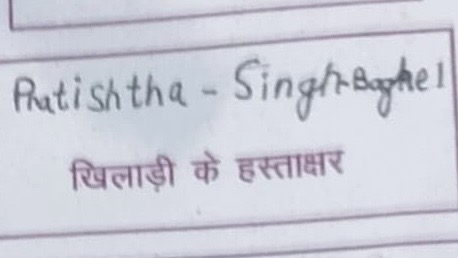 Pratishtha - Singh-Baghel
खिलाड़ी के हस्ताक्षर